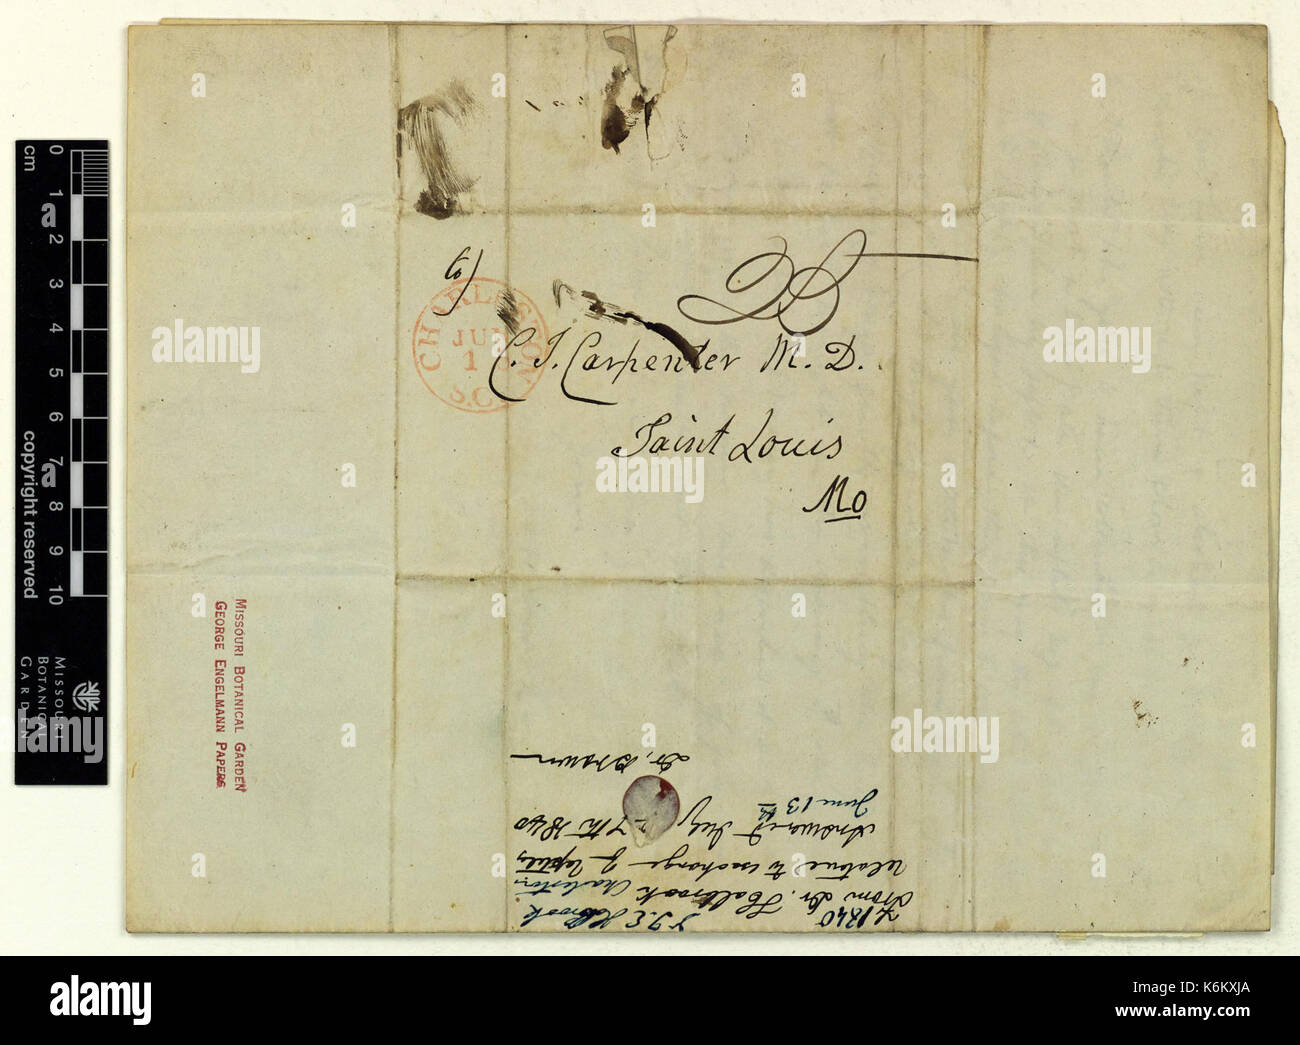 to)
CHARLESTON
JUN
1
S.C.
C. J. Carpenter M. D.
Saint Louis
Mo
0 1 2 3 4 5 6 7 8 9 10
cm
copyright reserved
MISSOURI
BOTANICAL
GARDEN
MISSOURI BOTANICAL GARDEN
GEORGE ENGELMANN PAPERS
1840
J. E. Holbrook
From Dr. Holbrook Charleston
relative to exchange of reptiles
Answered July 7th 1840
June 13th
Dr. Brown
a alamy
alamy
W6KXJA
www.alamy.com